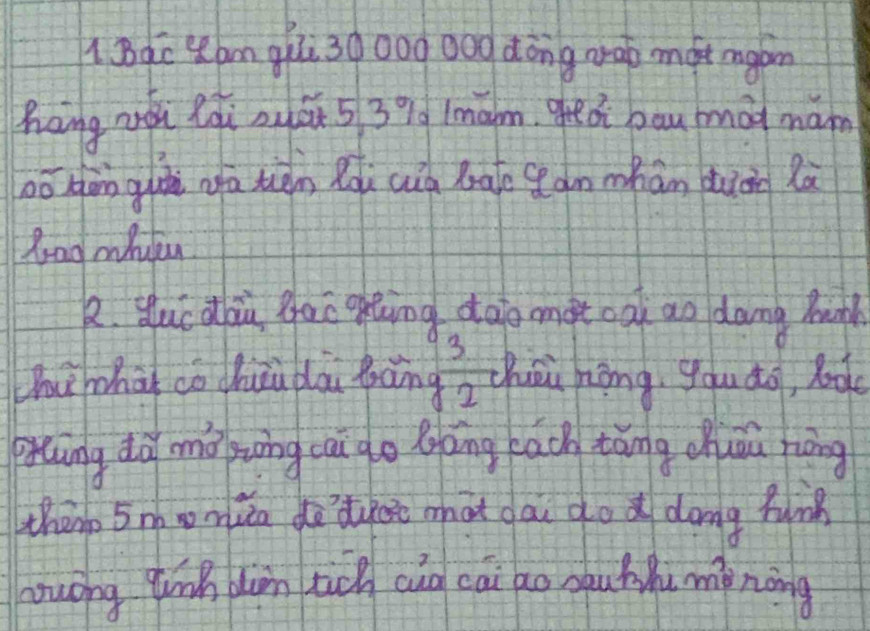 1 Bác Lan gửi 30 000 000 đồng vào một ngân
hàng với lãi suất 5,3% 1 năm. Hỏi sau một năm
số tiền gửi và tiền lãi của bác Lan nhân được là
bao nhiêu
2. Lúc đầu, bác Hùng đào một cái ao dạng hình
chữ nhật có chiều dài bằng 3/2 chiều rộng. Sau đó, bác
Hùng đã mở rộng cái ao bằng cách tăng chiều rộng
thêm 5 m nữa để được một cái ao dạng hình
vuông Tính diện tích của cái ao sau khi mở rộng